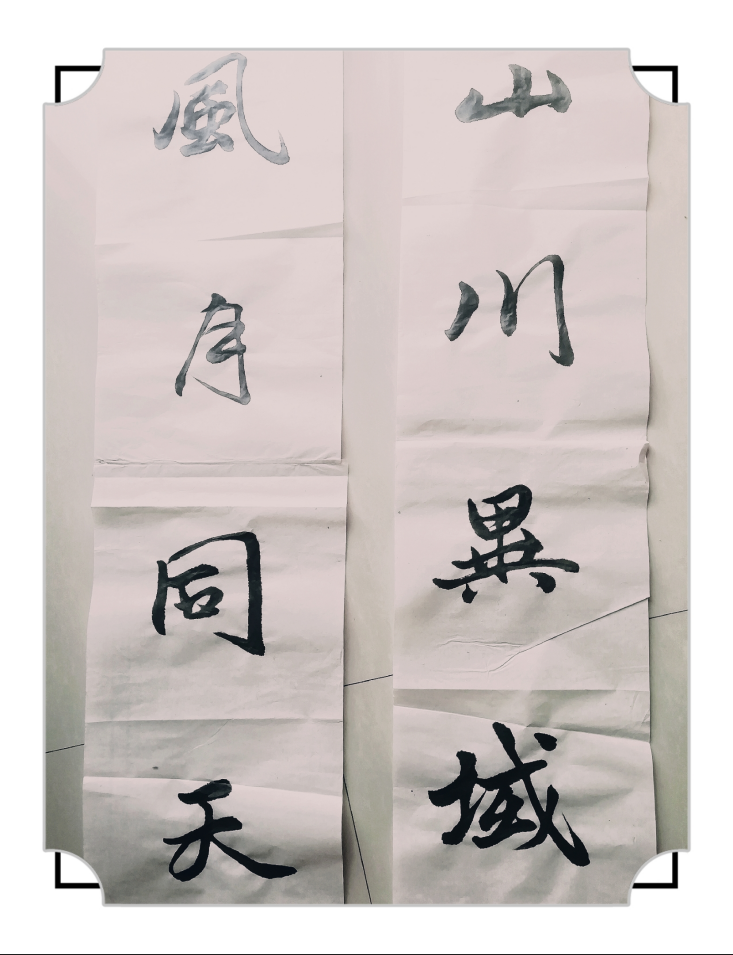 山川異域
風月同天